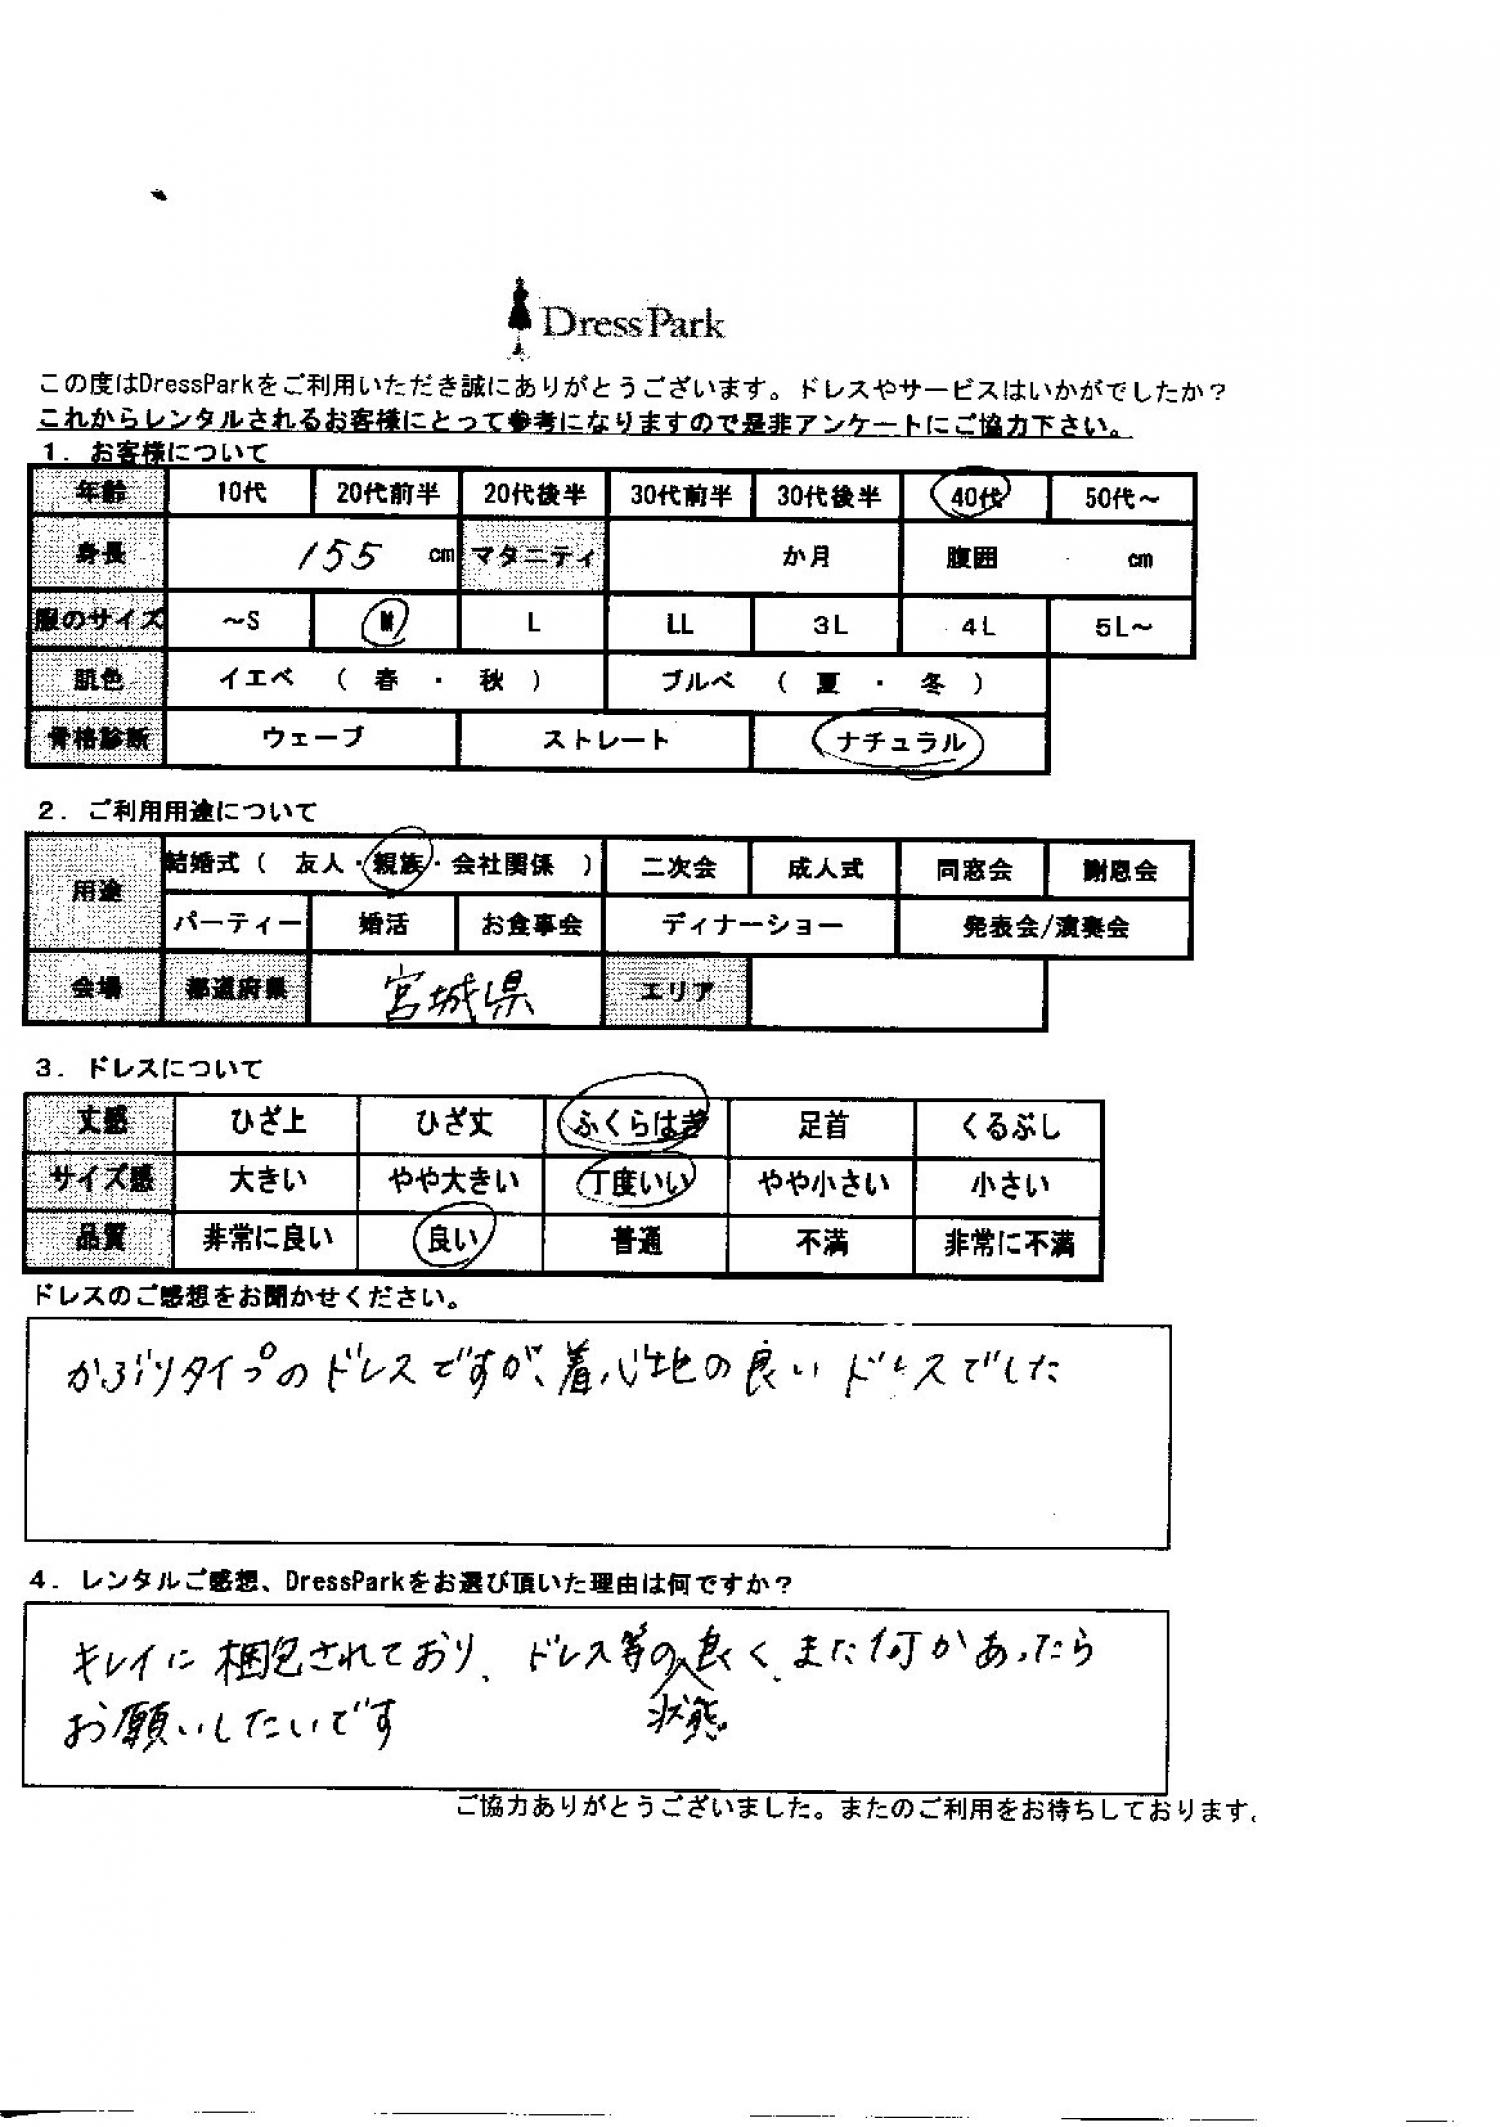 DressPark
この度はDressParkをご利用いただき誠にありがとうございます。ドレスやサービスはいかがでしたか？
これからレンタルされるお客様にとって参考になりますので是非アンケートにご協力下さい。
１．お客様について
年齢 10代 20代前半 20代後半 30代前半 30代後半 40代 50代～
身長 155 cm マタニティ か月 腹囲 cm
服のサイズ ～S M L LL 3L 4L 5L～
肌色 イエベ （ 春 ・ 秋 ） ブルベ （ 夏 ・ 冬 ）
骨格診断 ウェーブ ストレート ナチュラル
２．ご利用用途について
用途 結婚式（ 友人・親族・会社関係 ） 二次会 成人式 同窓会 謝恩会
パーティー 婚活 お食事会 ディナーショー 発表会/演奏会
会場 都道府県 宮城県 エリア
３．ドレスについて
丈感 ひざ上 ひざ丈 ふくらはぎ 足首 くるぶし
サイズ感 大きい やや大きい 丁度いい やや小さい 小さい
品質 非常に良い 良い 普通 不満 非常に不満
ドレスのご感想をお聞かせください。
かぶりタイプのドレスですが、着心地の良いドレスでした
４．レンタルご感想、DressParkをお選び頂いた理由は何ですか？
キレイに梱包されており、ドレス等の良く、また何かあったら
状態
お願いしたいです
ご協力ありがとうございました。またのご利用をお待ちしております。